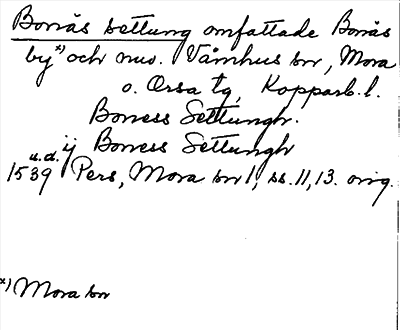 Bonäs settung omfattade Bonäs
by *) och nuv. Våmhus sn, Mora
o. Orsa tg, Kopparb. l.
Boness Settungh.
ij Boness Settungh
u.d.
1539 Pers, Mora sn 1, ss. 11, 13. orig.
*) Mora sn